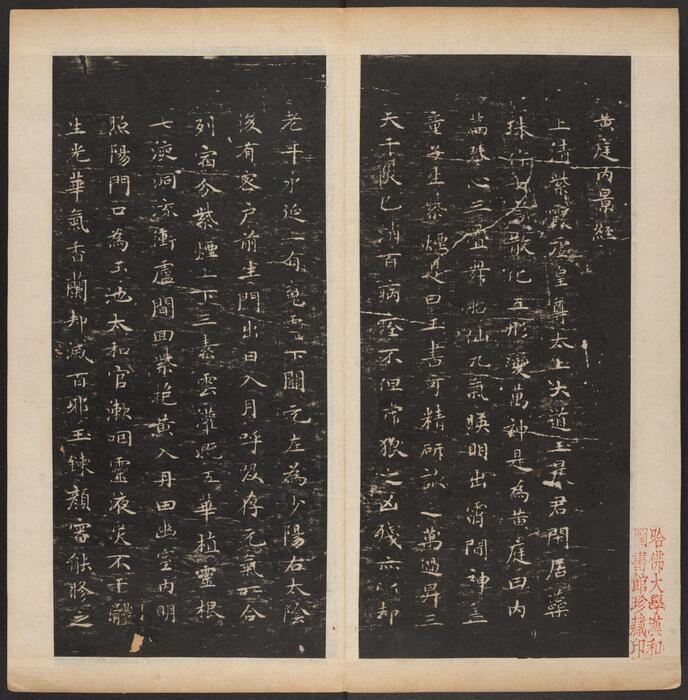 黄庭内景經
上清紫霞虛皇尊太上大道玉晨君閑居蘂
珠作七言散化五形變萬神是為黄庭曰内
篇琴心三疊舞胎仙九氣暎明出霄間神盖
童子生紫煙是曰玉書可精研詠之萬過昇三
天千灾已消百病痊不但虎狼之凶殘亦以却
老年永延一有魂靈下關元左為少陽右太陰
後有密户前生門出日入月呼吸存元氣所合
列宿分紫煙上下三素雲灌溉五華植靈根
七液洞流衝廬間迴紫抱黄入丹田幽室内明
照陽門口為玉池太和官漱咽靈液灾不干體
生光華氣香蘭却滅百邪玉鍊顔審能脩之
哈佛大學漢和
圖書館珍藏印